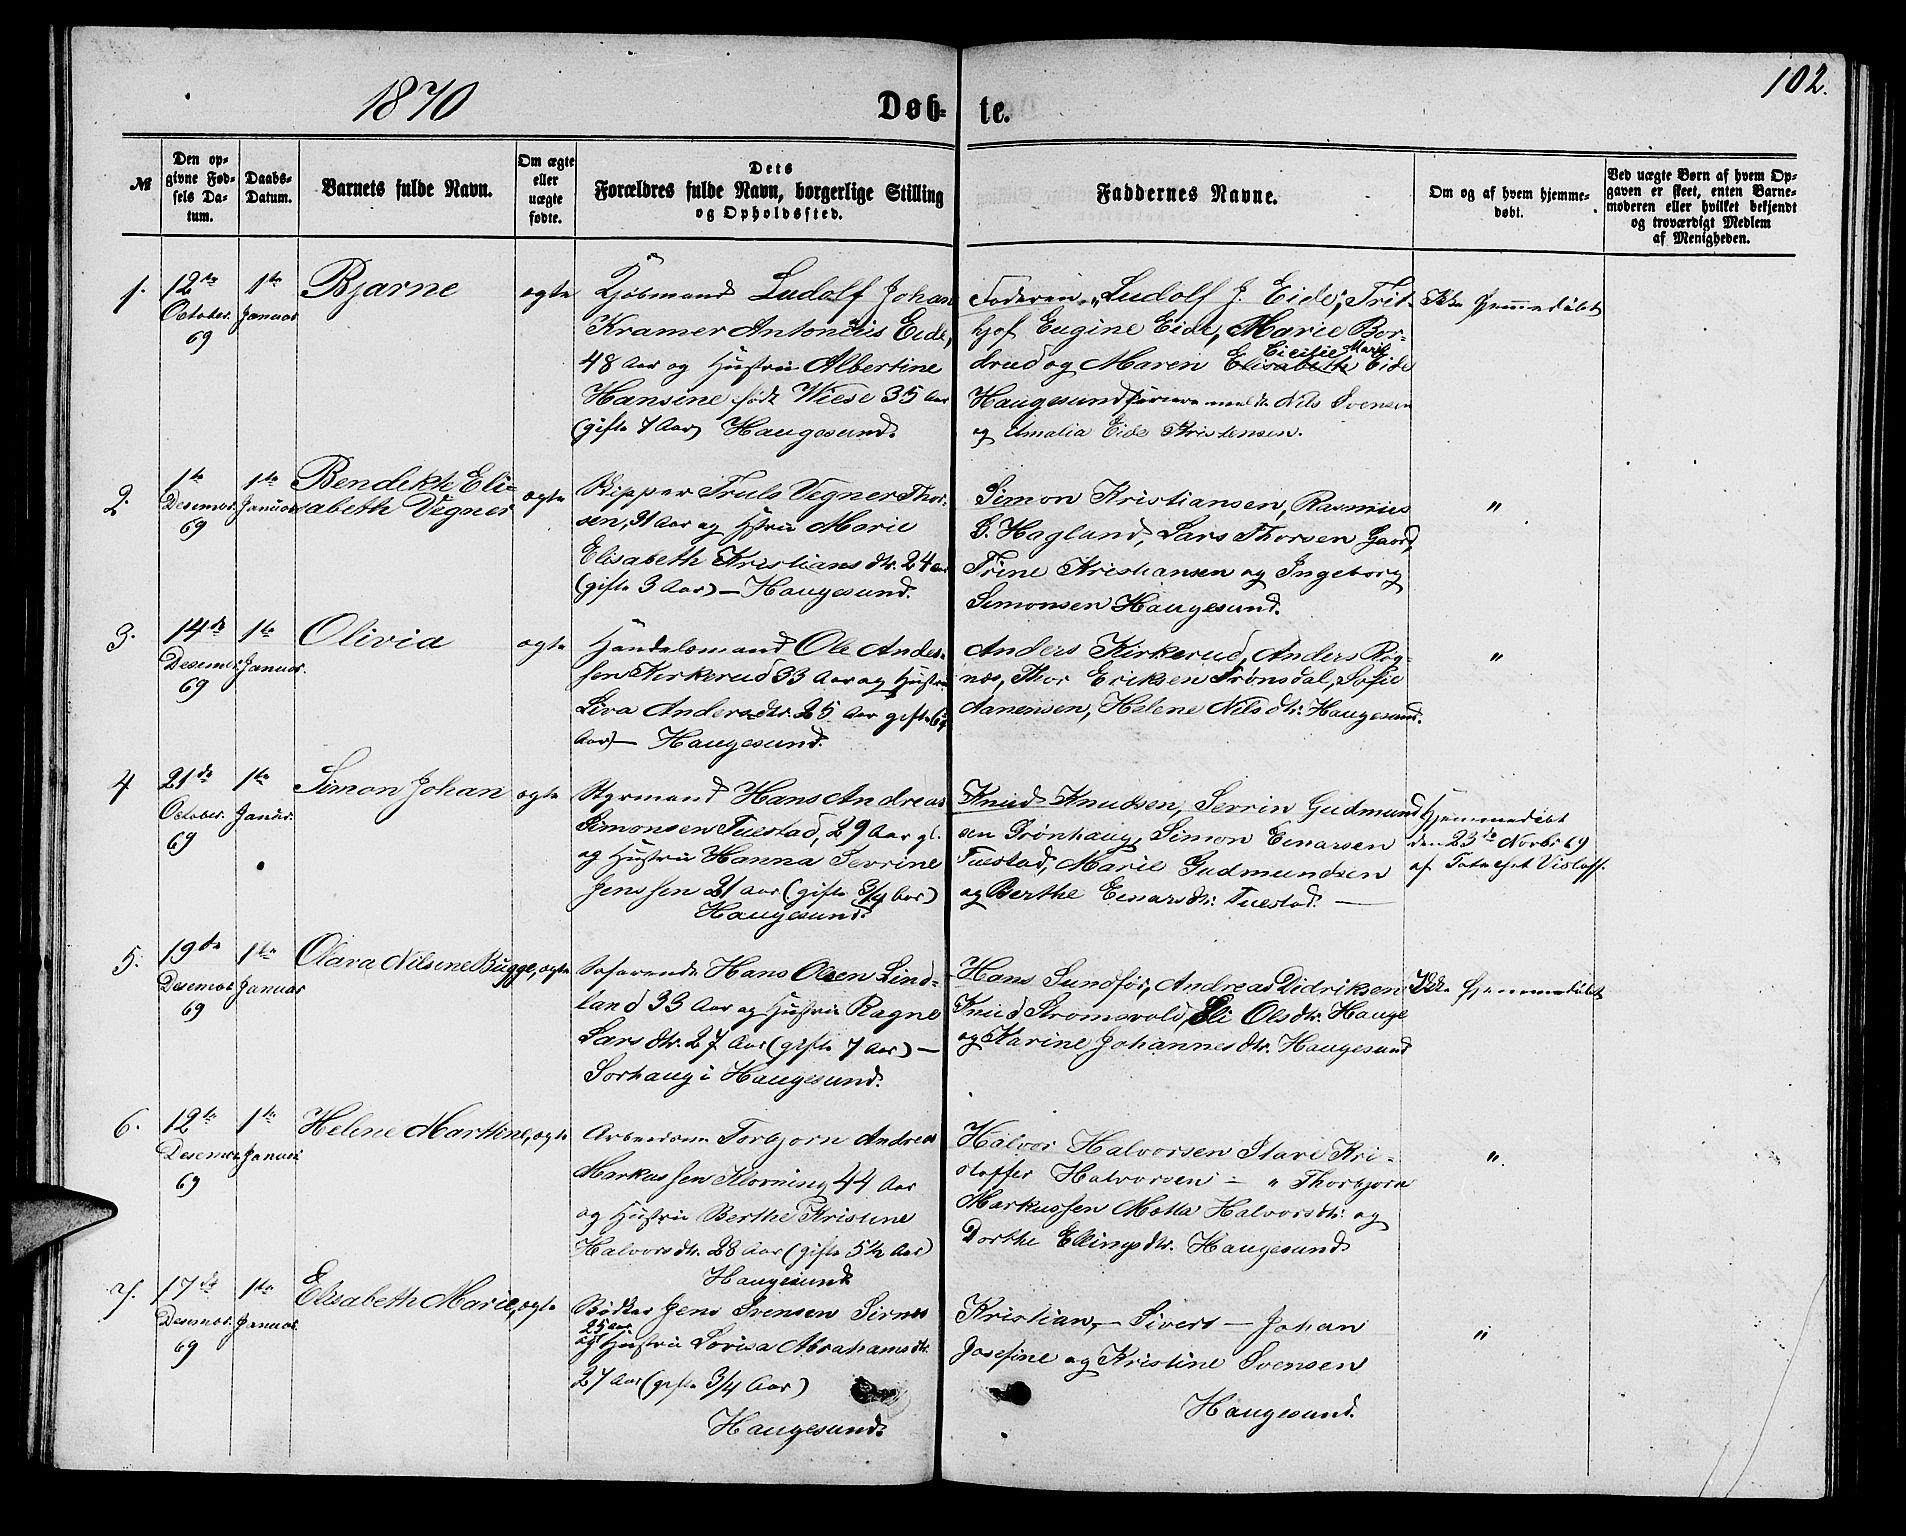 1870
Døb-
te.
102.
№
Den op-
givne Fød-
sels Da-
tum.
Daabs-
Datum.
Barnets fulde Navn.
Om ægte
eller
uægte
fødte.
Dets
Forældres fulde Navn, borgerlige Stilling
og Opholdssted.
Faddernes Navne.
Om og af hvem hjemme-
døbt.
Ved uægte Børn af hvem Op-
gaven er skeet, enten Barne-
moderen eller hvilket bekjendt
og troværdigt Medlem
af Menigheden.
1.
12te
October.
69
1te
Januar
Bjarne
ægte
Kjøbmand Ludolf Johan
Kramer Antonius Eide,
48 Aar og Hustru Albertine
Hansine født Wiese 35 Aar
(gifte 7 Aar) Haugesund.
Faderen, Ludolf J. Eide, Frit-
hjof Eugine Eide, Marie Bor-
drud og Maren Elisabeth Eide
Cicilie Marie
Haugesund Nils Svensen
og Amalia Eide Kristensen.
Ikke hjemmedøbt
2.
1te
Desembr.
69
1te
Januar
Bendikte Eli-
sabeth Vegner
ægte
Skipper Truls Vegner Thor-
sen, 31 Aar og Hstru Marie
Elisabeth Kristiansdtr. 24 Aar
(gifte 3 Aar) — Haugesund.
Simon Kristiansen, Rasmus
B. Haglund, Lars Thorsen Gaard,
Trine Kristiansen og Ingeborg
Simonsen Haugesund.
"
3.
14de
Desembr.
69
1te
Januar.
Olivia
ægte
Handelsmand Ole Anders-
sen Kirkerud 33 Aar og Hustru
Liva Andersdtr. 25 Aar gifte 6¼
Aar) — Haugesund.
Anders Kirkerud, Anders Rog-
næs, Thor Eriksen Frønsdal, Sofie
Aanensen, Helene Nilsdtr. Haugesund.
"
4
21de
October.
69
1te
Januar.
Simon Johan
ægte
Styrmand Hans Andreas
Simonsen Tuestad, 29 Aar gl.
og Hustru Hanna Serrine
Jenssen 21 Aar (gifte 3/4 Aar)
Haugesund.
Knud Knudsen, Serrin Gudmund
sen Grønhaug, Simon Einarsen
Tuestad, Marie Gudmundsen
og Berthe Einarsdtr. Tuestad. —
Hjemmedøbt
den 23de Novbr 69
af
5.
19de
Desembr
69
1te
Januar
Olava Nilsine Bugge,
ægte
Søfarende Hans Olsen Lind-
land 33 Aar og Hustru Ragne
Larsdtr. 27 Aar (gifte 7 Aar) —
Sørhaug i Haugesund.
Hans Sundfør, Andreas Didriksen
Knud Strømsvold, Eli Olsdtr. Hauge
og Karine Johannesdtr. Haugesund
Ikke hjemmedøbt
6.
12te
Desembr.
69
1te
Januar
Helene Martine,
ægte
Arbeidsm. Torbjørn Andreas
Markussen Kløvning 44 Aar
og Hustru Berthe Kristine
Halvorsdtr. 28 Aar (gifte 5½ Aar)
Haugesund.
Halvor Halvorsen Stave Kri-
stoffer Halvorsen — " Thorbjørn
Markussen Motta Halvorsdtr. og
Dorthe Ellingsdtr. Haugesund
"
7.
17de
Desembr.
69
1te
Januar.
Elisabeth Marie,
ægte
Bødker Jens Svensen Sirnes
25 Aar
og Hustru Lovisa Abrahamsdtr.
27 Aar (gifte 3/4 Aar)
Haugesund.
Kristian, — Sivert — Johan
Josefine og Kristine Svensen
Haugesund.
"